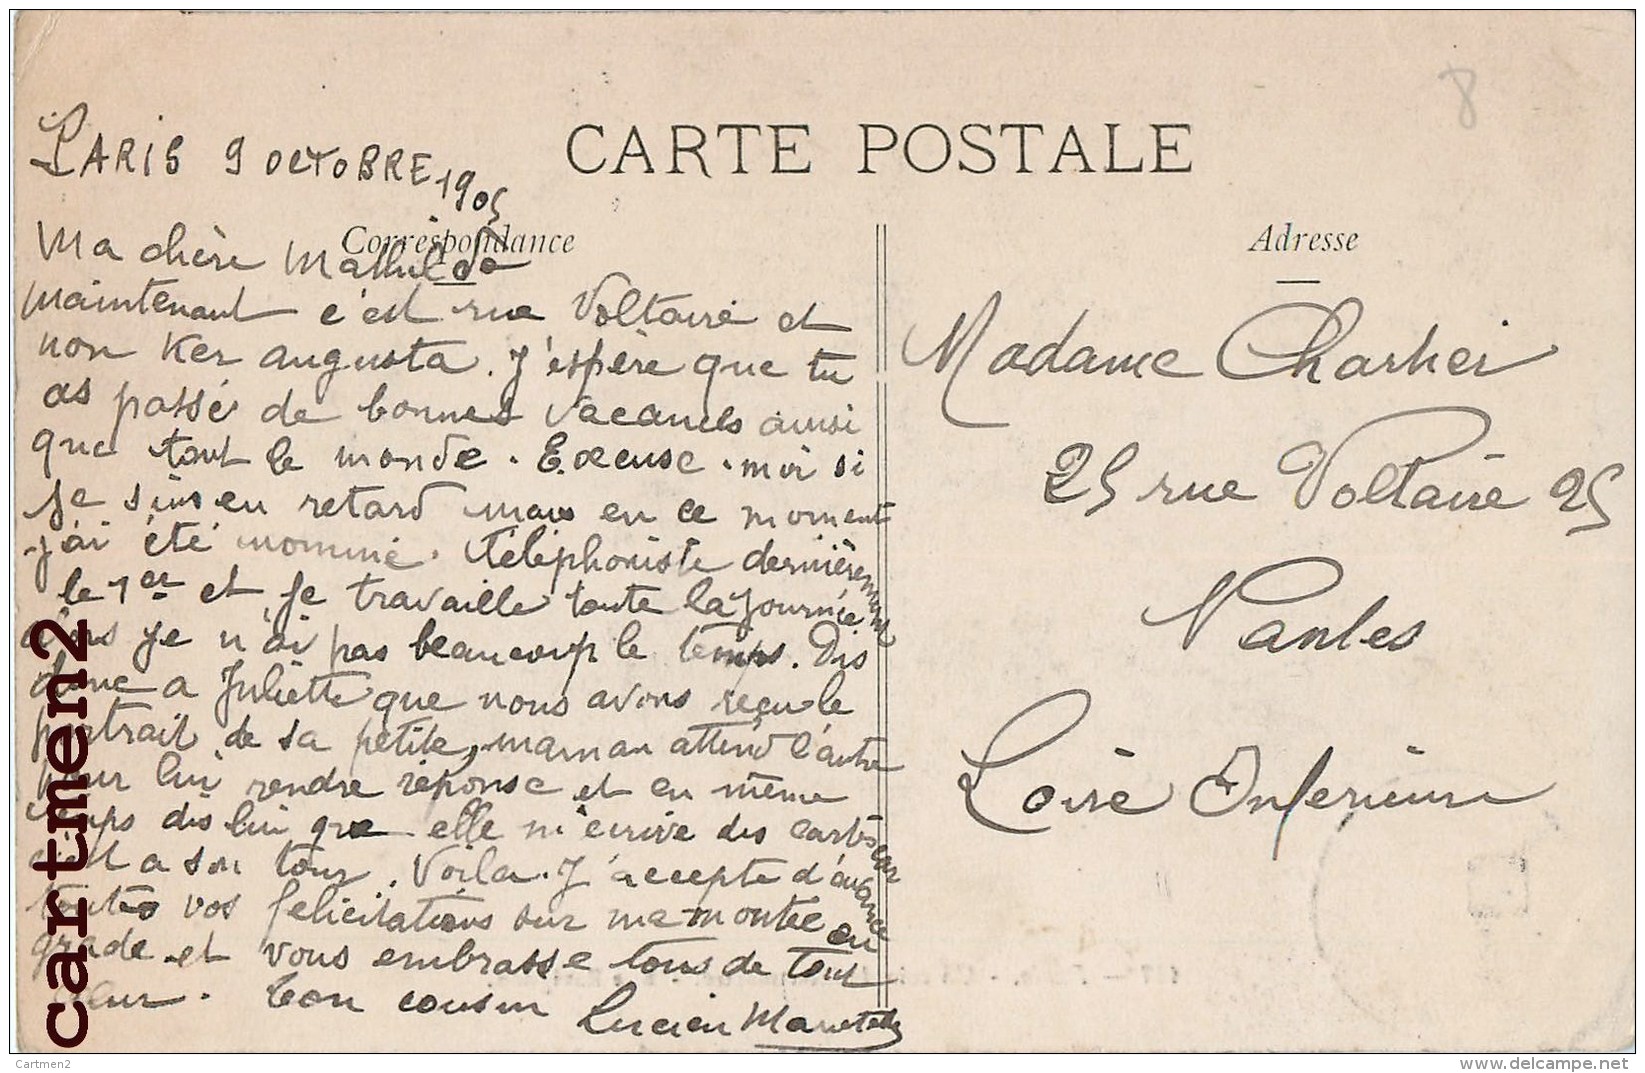 CARTE POSTALE
Correspondance
Adresse
8
PARIS 9 OCTOBRE 1905
Ma chère Mathilde
maintenant c'est rue Voltaire et
non Ker augusta. J'espère que tu
as passé de bonnes vacances ainsi
que tout le monde. Excuse-moi si
je suis en retard mais en ce moment
j'ai été nommé téléphoniste dernièrement
le 1er et je travaille toute la journée
alors je n'ai pas beaucoup le temps. Dis
donc a Juliette que nous avons reçu le
portrait de sa petite, maman attend l'autre
pour lui rendre réponse et en même
temps dis lui que elle m'écrive des cartes car
c'est a son tour. Voila. J'accepte d'avance
toutes vos felicitations sur ma montée en
grade et vous embrasse tous de tout
cœur. Ton cousin
Lucien
Madame
25 rue Voltaire 25
Nantes
Loire Inferieure
cartmen2
Cartmen2
www.delcampe.net